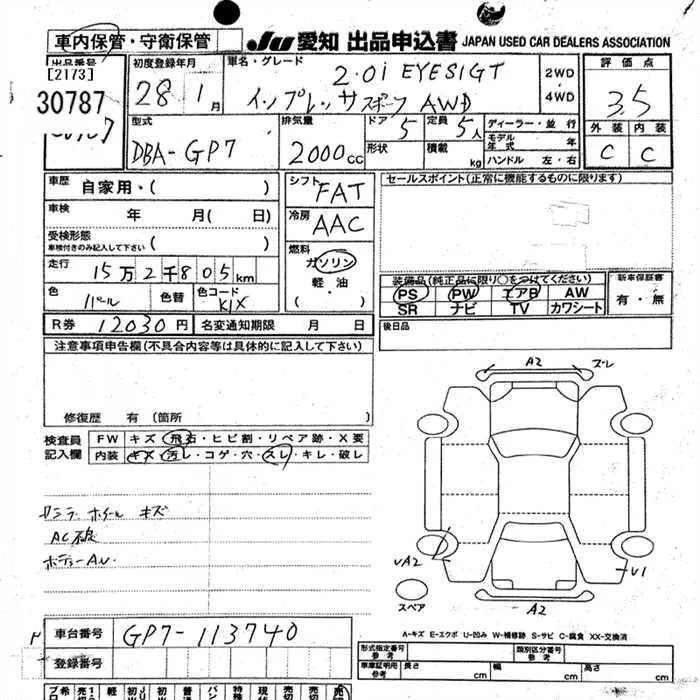 車内保管・守衛保管
JU 愛知 出品申込書 JAPAN USED CAR DEALERS ASSOCIATION
出品番号
[2173]
30787
初度登録年月
28年 1月
車名・グレード
2.0i EYESIGT
インプレッサスポーツ AWD
2WD
・
4WD
評価点
3.5
外装 内装
C C
型式
DBA-GP7
排気量
2000cc
ドア
5
形状
定員
5人
積載 kg
ディーラー・並行
モデル年式 年
ハンドル 左・右
車歴
自家用・( )
車検
年 月( 日)
受検形態
車検付きのみ記入して下さい ( )
走行
15万2千805km
色
パール
色替
色コード
K1X
R券 12030円 名変通知期限 月 日
シフト
FAT
冷房
AAC
燃料
ガソリン
軽・油
・( )
セールスポイント(正常に機能するものに限ります)
装備品(純正品に限り○をつけてください)
PS PW エアB AW
SR ナビ TV カワシート
新車保証書
有・無
後日品
注意事項申告欄(不具合内容等は具体的に記入して下さい)
修復歴 有 (箇所 )
検査員
記入欄
FW キズ・飛石・ヒビ割・リペア跡・X要
内装 キズ・汚レ・コゲ・穴・スレ・キレ・破レ
ホイール キズ
AC
A2
ズレ
VA2
V1
A2
スペア
A-キズ E-エクボ U-凹み W-補修跡 S-サビ C-腐食 XX-交換済
車台番号 GP7-113740
登録番号
形式指定番号
参考
類別区分番号
参考
車庫証明用
参考
長さ cm 幅 cm 高さ cm